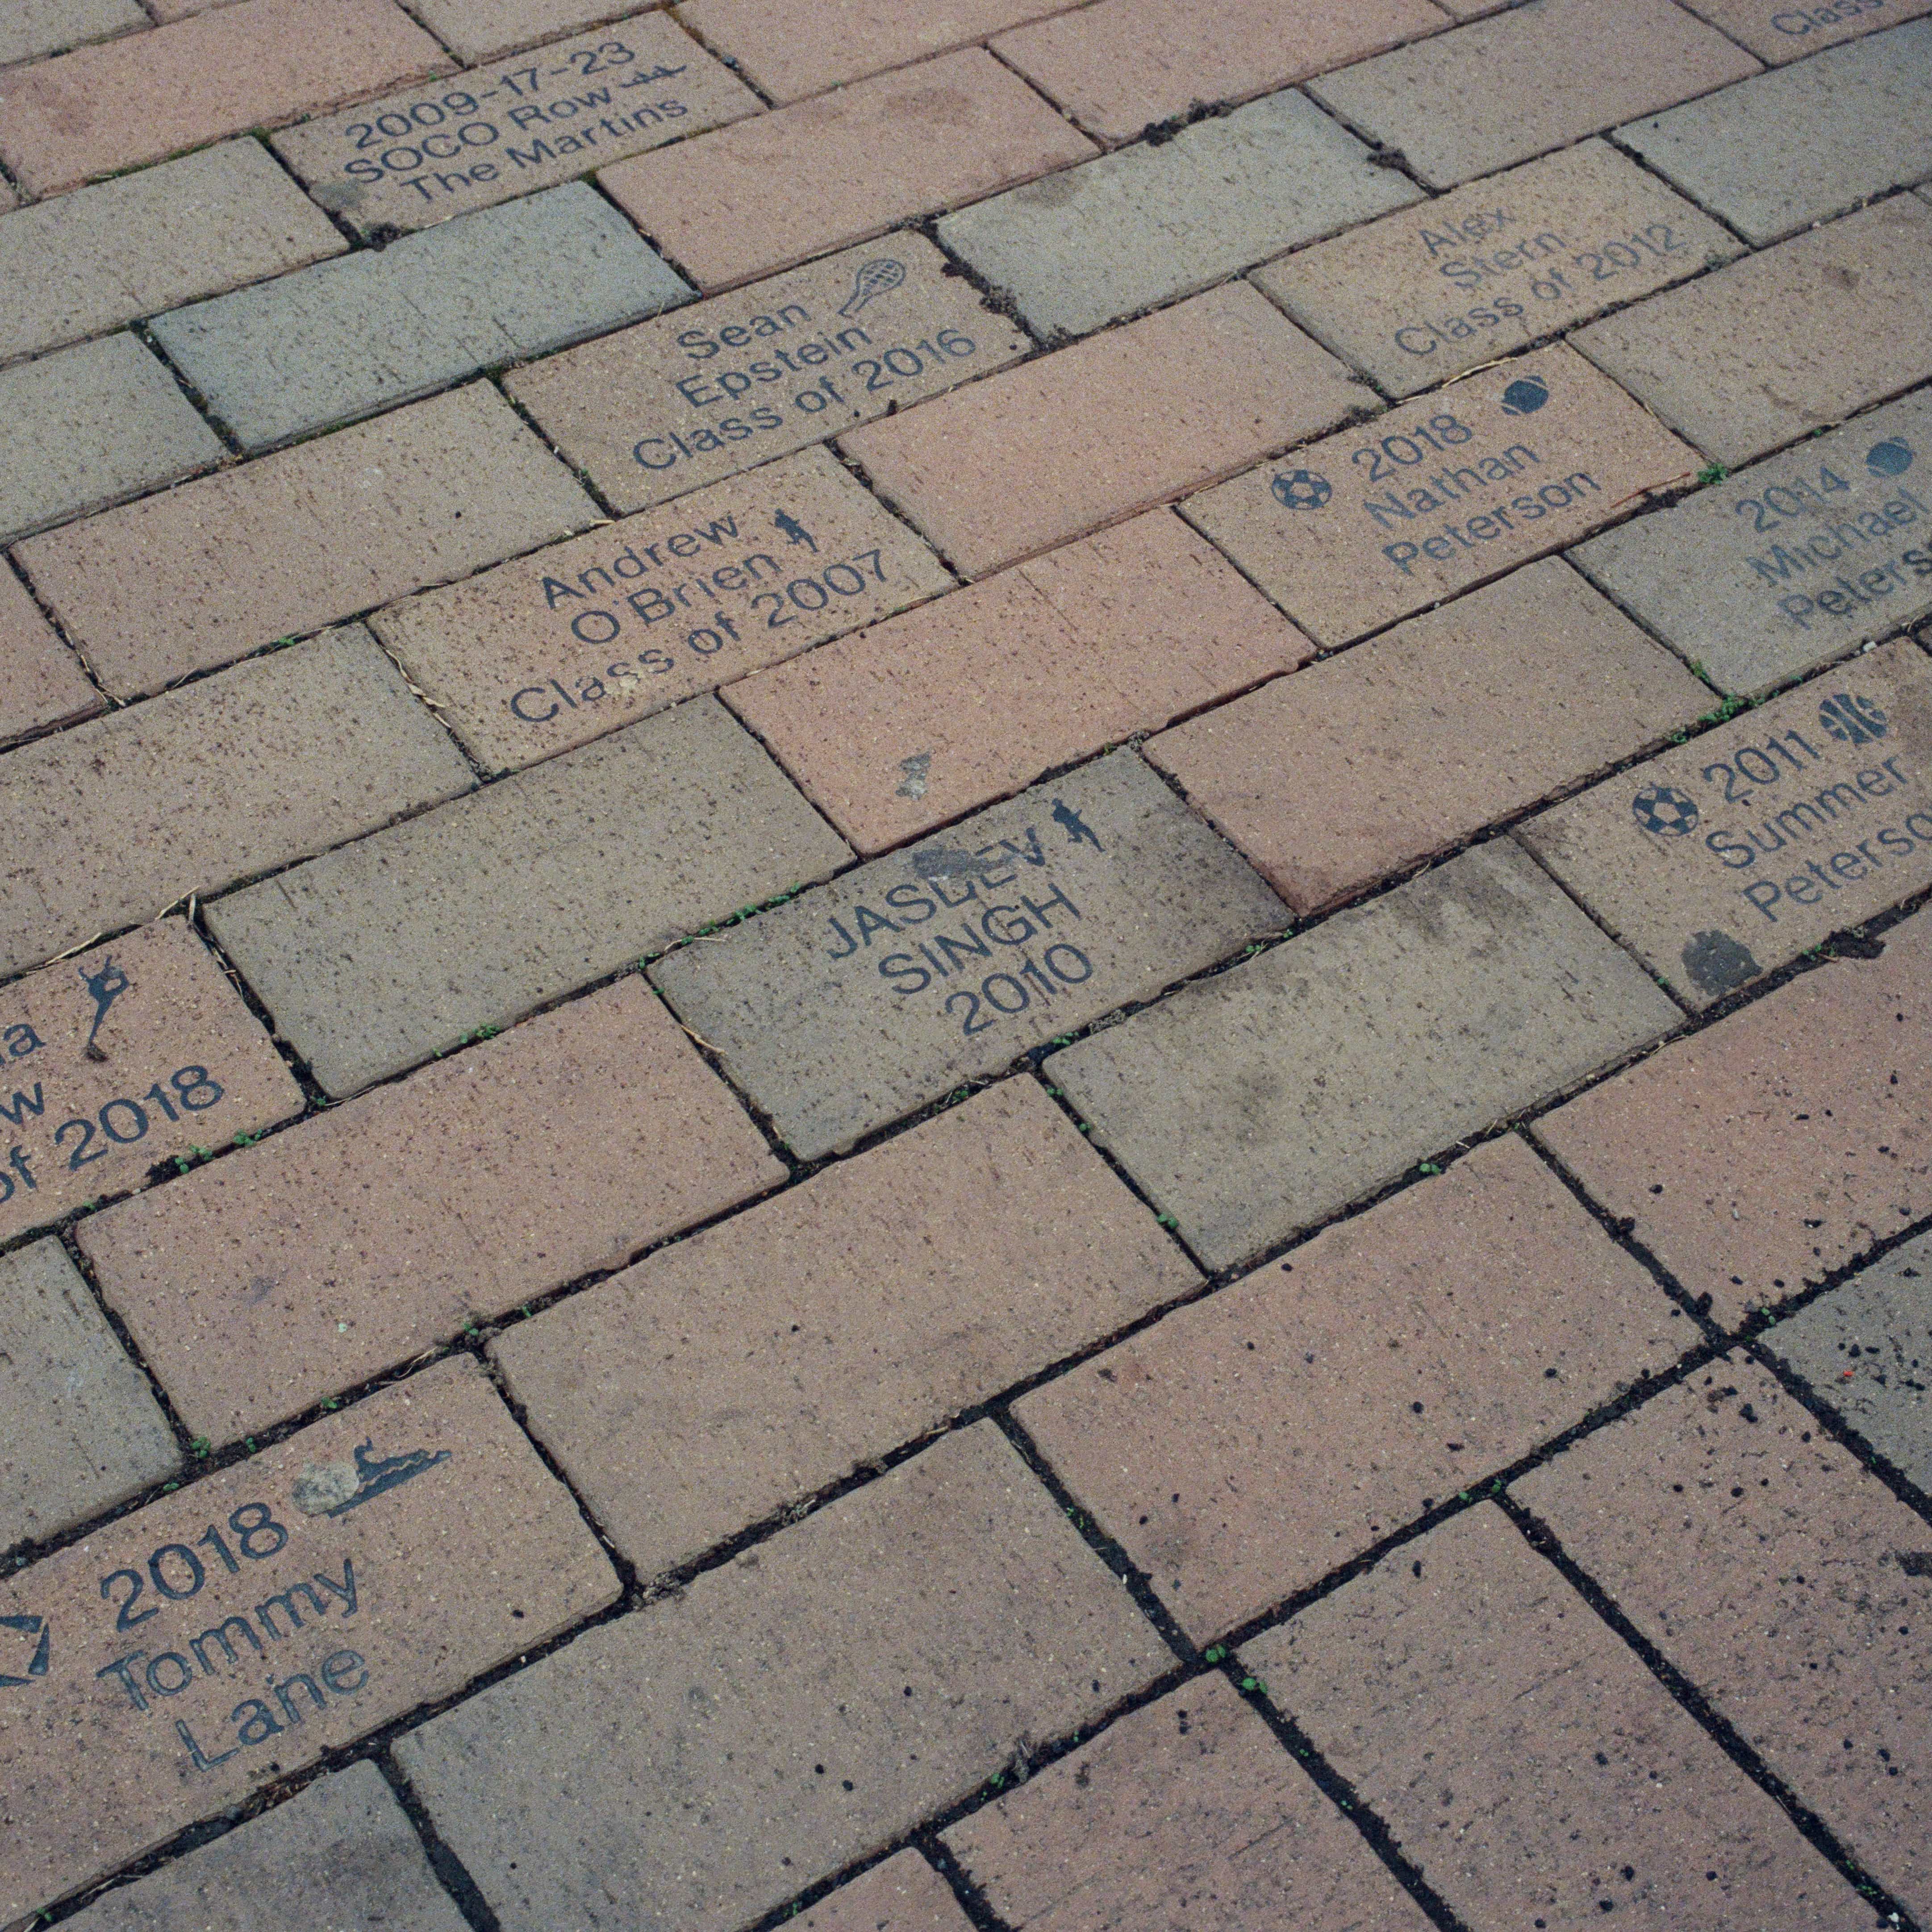 Class
2009-17-23
SOCO Row
The Martins
Alex
Stern
Class of 2012
Sean
Epstein
Class of 2016
2018
Nathan
Peterson
2014
Michael
Peters
Andrew
O'Brien
Class of 2007
2011
Summer
Peterso
JASDEV
SINGH
2010
a
w
of 2018
2018
Tommy
Lane